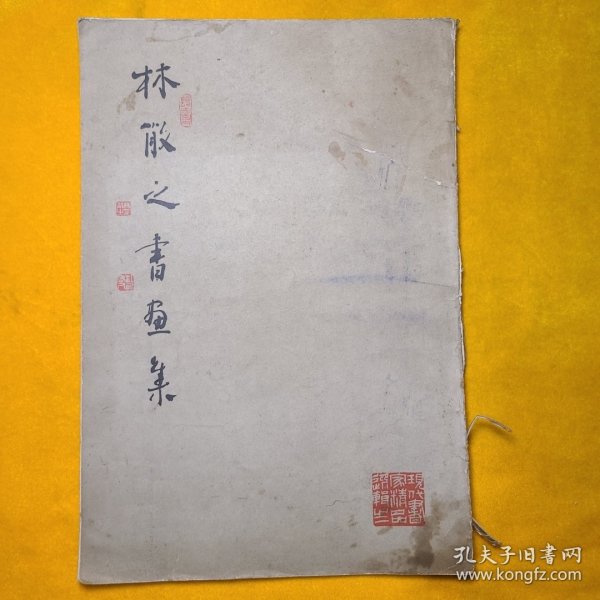 林散之書画集
現代書畫
家精品
選輯之二
孔夫子旧書网
www.kongfz.com